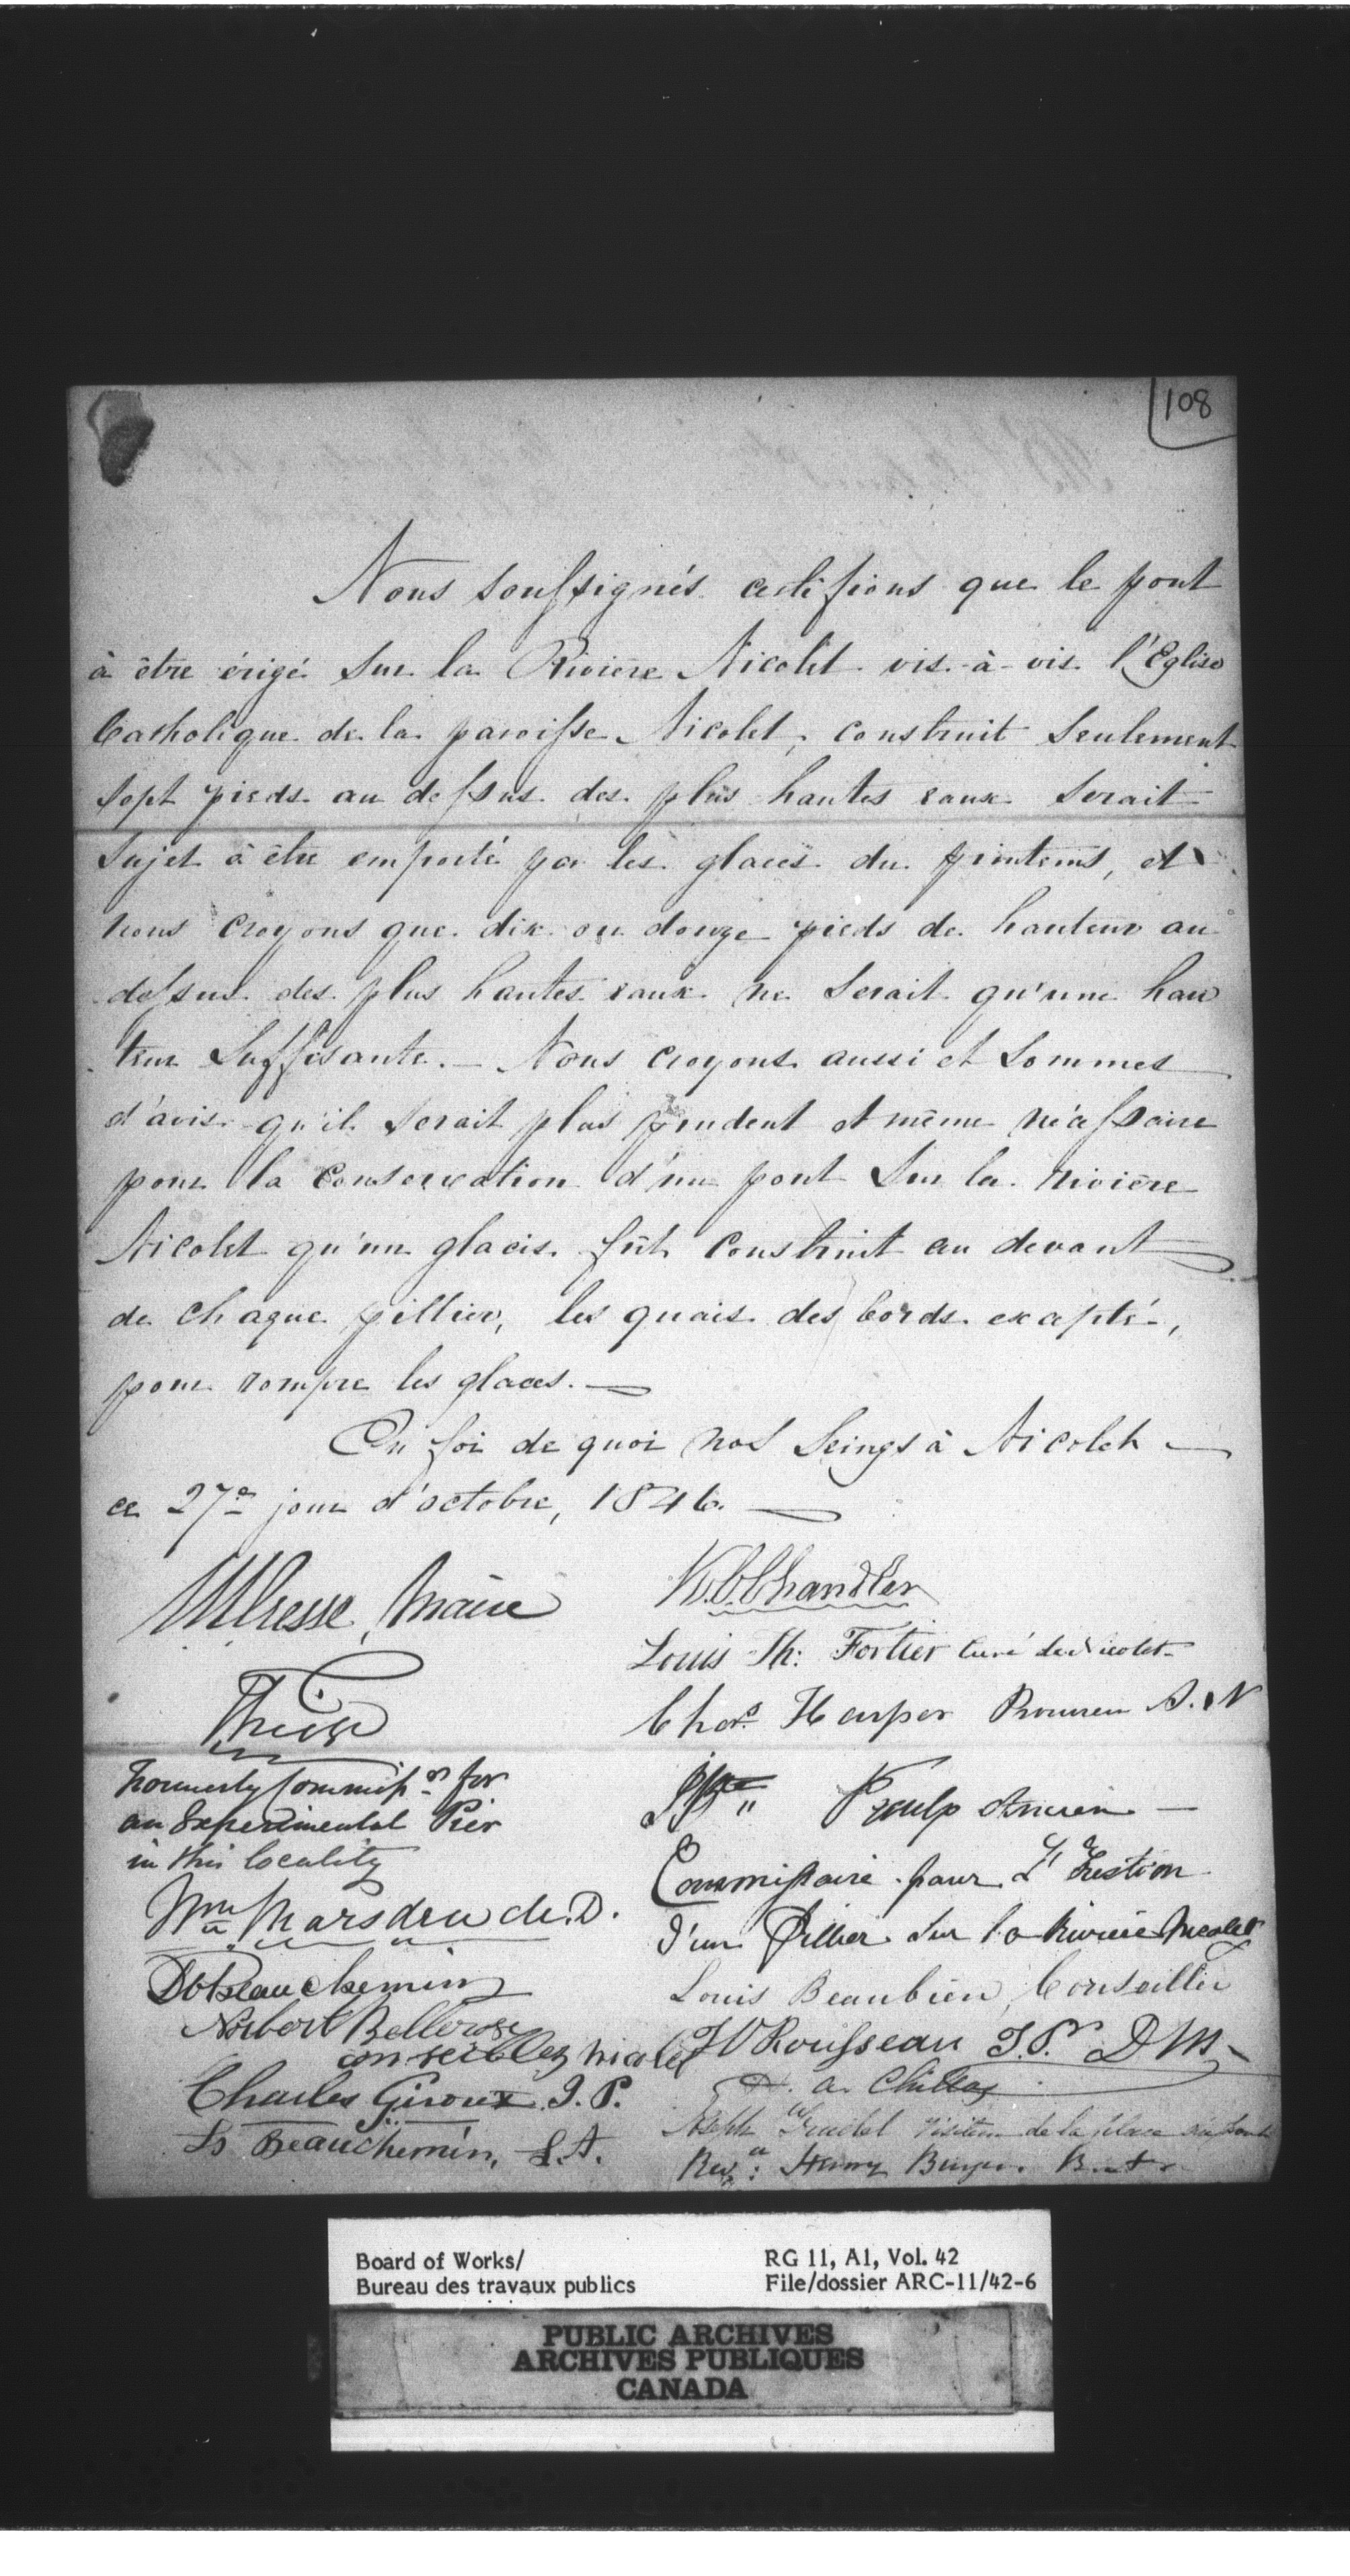 108
Nous soussignés certifions que le pont
à être érigé sur la Rivière Nicolet vis-à-vis l'Eglise
Catholique de la paroisse Nicolet, construit seulement
sept pieds au dessus des plus hautes eaux serait
sujet à être emporté par les glaces du printems, et
nous croyons que dix ou douze pieds de hauteur au
dessus des plus hautes eaux ne serait qu'une hau
teur suffisante. — Nous croyons aussi et sommes
d'avis qu'il serait plus prudent et même nécessaire
pour la conservation d'un pont sur la rivière
Nicolet qu'un glacis fût construit au devant
de chaque pillier, les quais des bords excepté,
pour rompre les glaces. —
En foi de quoi nos seings à Nicolet —
ce 27e jour d'octobre, 1846. —
Maire
K.C. Chandler
Louis Th: Fortier curé de Nicolet
Chas. Harper Procureur S. N
Formerly Commissr. for
an Experimental Pier
in this locality
Proulx Ancien —
Commissaire pour L'Erection
d'un Pillier sur la Rivière Nicolet
Wm. Marsden M.D.
Beauchemin
Louis Beaubien, Conseiller
Norbert Bellerose
conseiller Nicolet
Rousseau J.P. DM
Charles Giroux J.P.
Ls Beauchemin, S.A.
Joseph visiteur de la place du pont
Revd: Henry Burges
Board of Works/
Bureau des travaux publics
RG 11, A1, Vol. 42
File/dossier ARC-11/42-6
PUBLIC ARCHIVES
ARCHIVES PUBLIQUES
CANADA